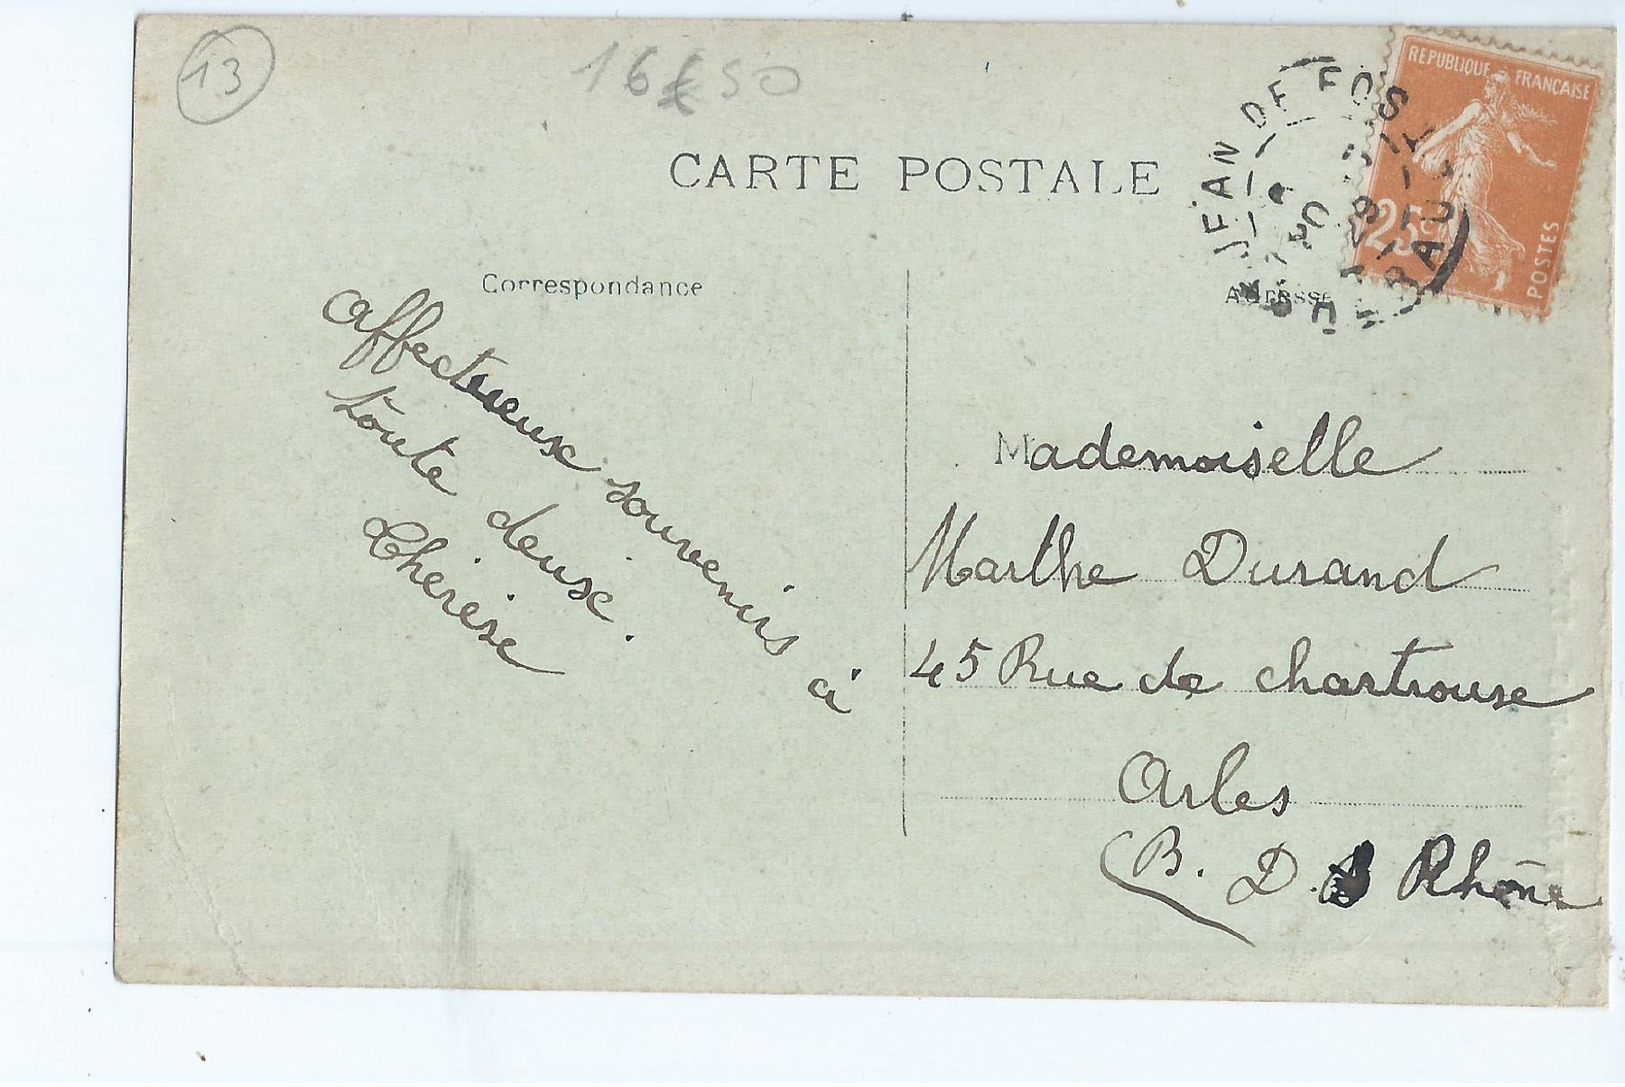 13
16€50
CARTE POSTALE
JEAN DE FOS
REPUBLIQUE FRANCAISE
25c
POSTES
Correspondance
Adresse
affectueux souvenirs à
toute deuxe.
Thérèse
Mademoiselle
Marthe Durand
45 Rue de chartrouse
Arles
(B. D. Rhône